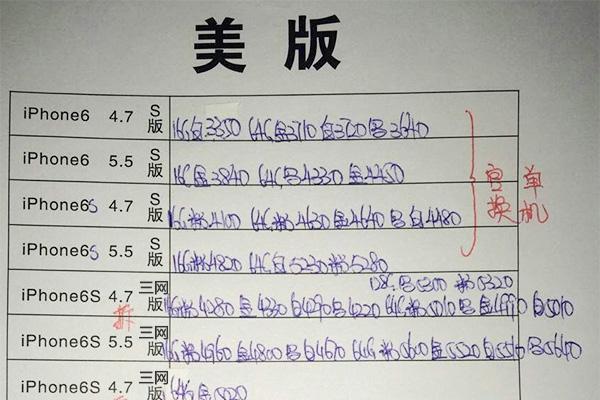 美版
iPhone6 4.7 S版 16G白3350 64G金3710 白3700 号3640
iPhone6 5.5 S版 16G金3840 64G号4330 金4450
iPhone6S 4.7 S版 16G粉4100 64G粉4630 金4640 号白4480
iPhone6S 5.5 S版 16G粉4820 64G白5230 粉5280
官换 单机
128G号5300 粉5320
iPhone6S 4.7 三网版 16G粉4280 金4330 白4290 号4220 64G粉5010 号金4990 白5010
拆
iPhone6S 5.5 三网版 16G粉4960 金4800 号白4670 64G粉5600 金5520 白5510 号5640
iPhone6S 4.7 三网版 64G金5020